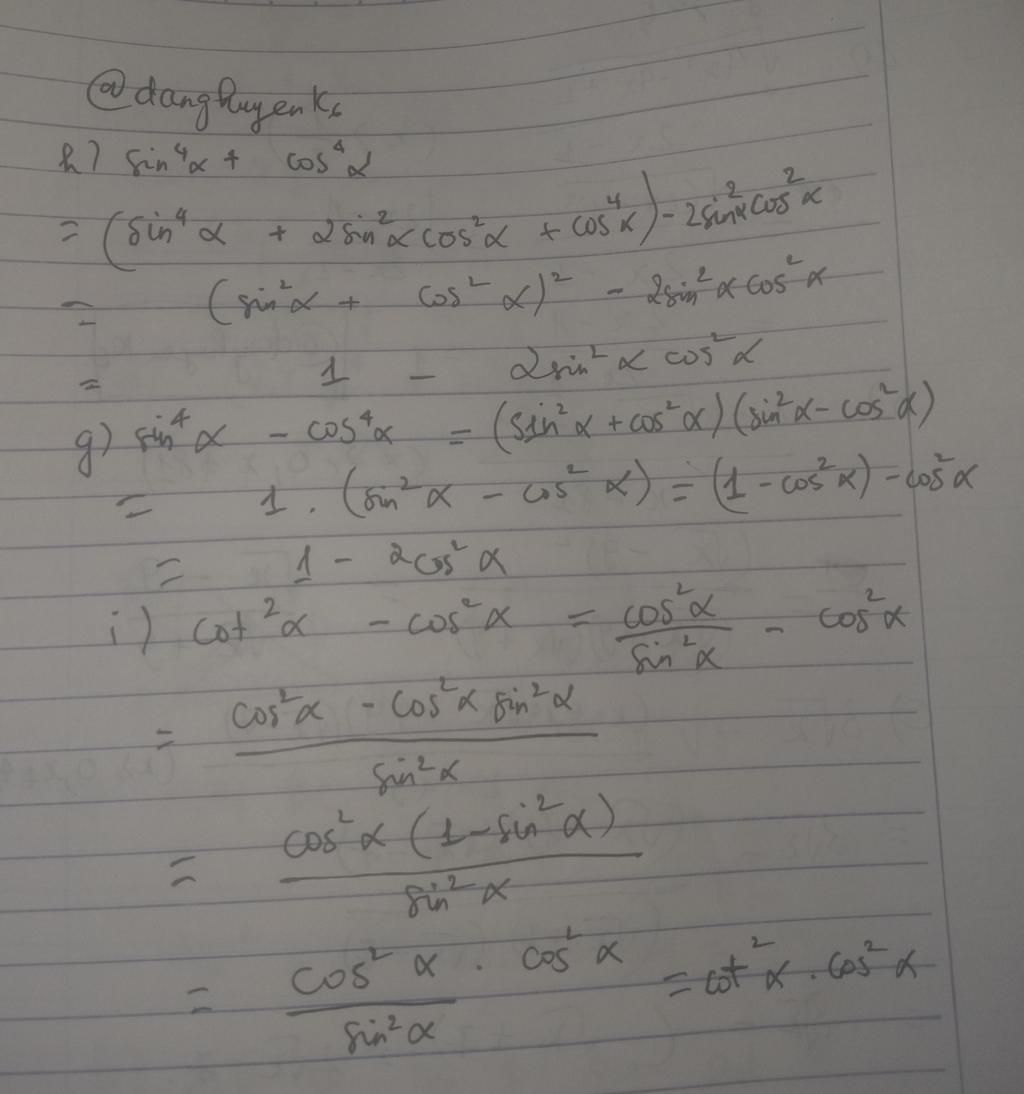 @danghuyenk6
h) sin⁴α + cos⁴α
= (sin⁴α + 2sin²αcos²α + cos⁴α) - 2sin²αcos²α
= (sin²α + cos²α)² - 2sin²αcos²α
= 1 - 2sin²αcos²α
g) sin⁴α - cos⁴α = (sin²α + cos²α)(sin²α - cos²α)
= 1 . (sin²α - cos²α) = (1 - cos²α) - cos²α
= 1 - 2cos²α
i) cot²α - cos²α = cos²α/sin²α - cos²α
= (cos²α - cos²α sin²α)/sin²α
= cos²α(1 - sin²α)/sin²α
= cos²α/sin²α . cos²α = cot²α . cos²α